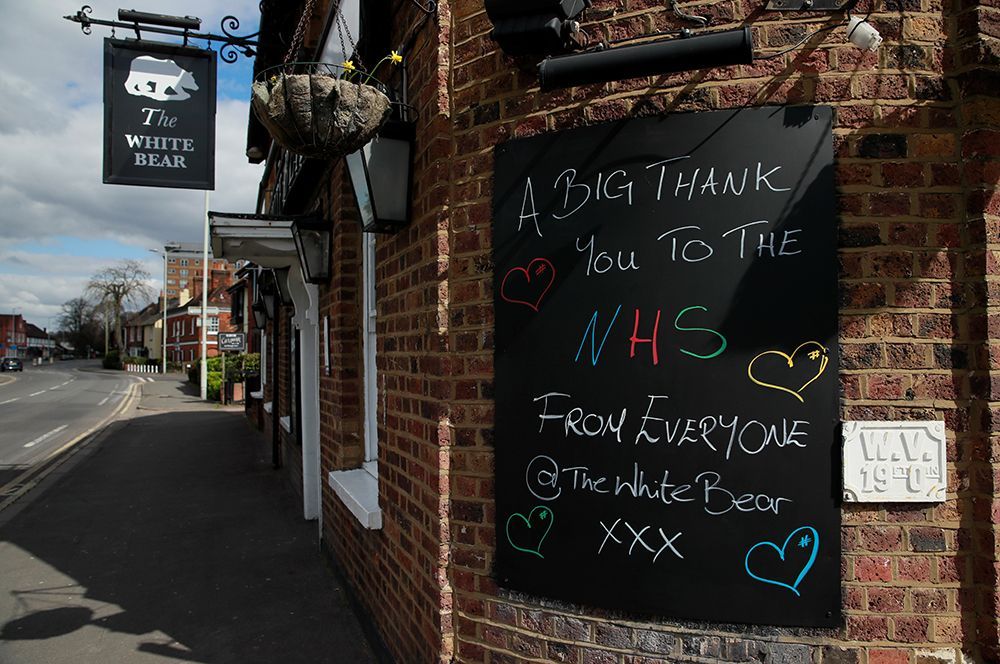 The
WHITE
BEAR
A BIG THANK
YOU TO THE
NHS
FROM EVERYONE
@THE WHITE BEAR
XXX
W.V.
19 FT 0 IN